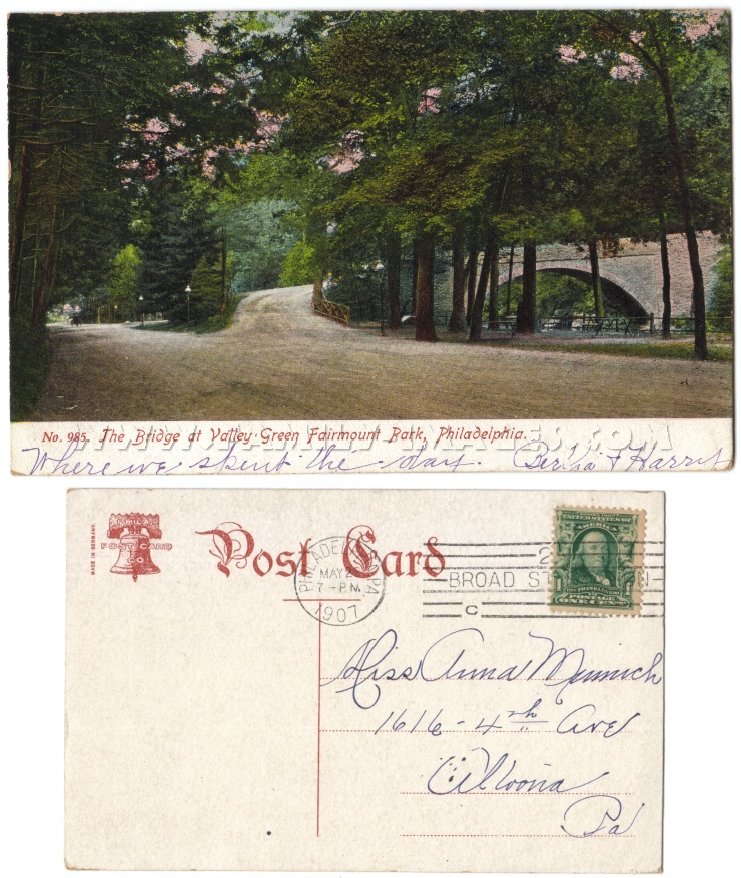 No. 985. The Bridge at Valley Green Fairmount Park, Philadelphia.
Where we spent the day. Bertha & Harris
MADE IN GERMANY.
POST CARD CO
Post Card
PHILADELPHIA PA.
MAY 2
7-PM
1907
BROAD ST
C
UNITED STATES OF AMERICA
FRANKLIN
POSTAGE
ONE CENT
Miss Anna Munich
1616-4th Ave
Altoona
Pa